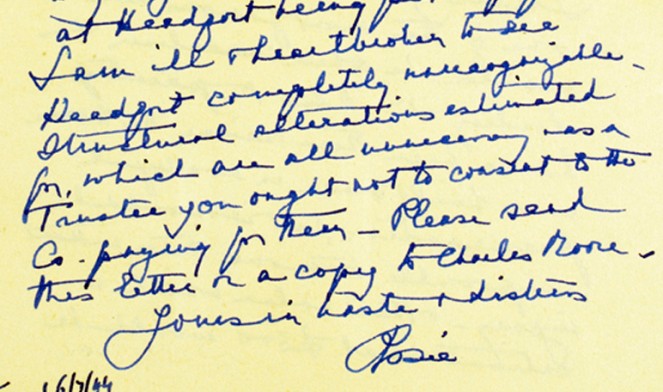 at Headfort being
I am ill & heartbroken to see
Headfort completely unrecognizable -
Structural alterations estimated
for, which are all unnecessary - as a
Trustee you ought not to consent to the
Co. paying for them - Please send
this letter or a copy to Charles Moore.
Yours in haste & distress
Rosie
6/7/44